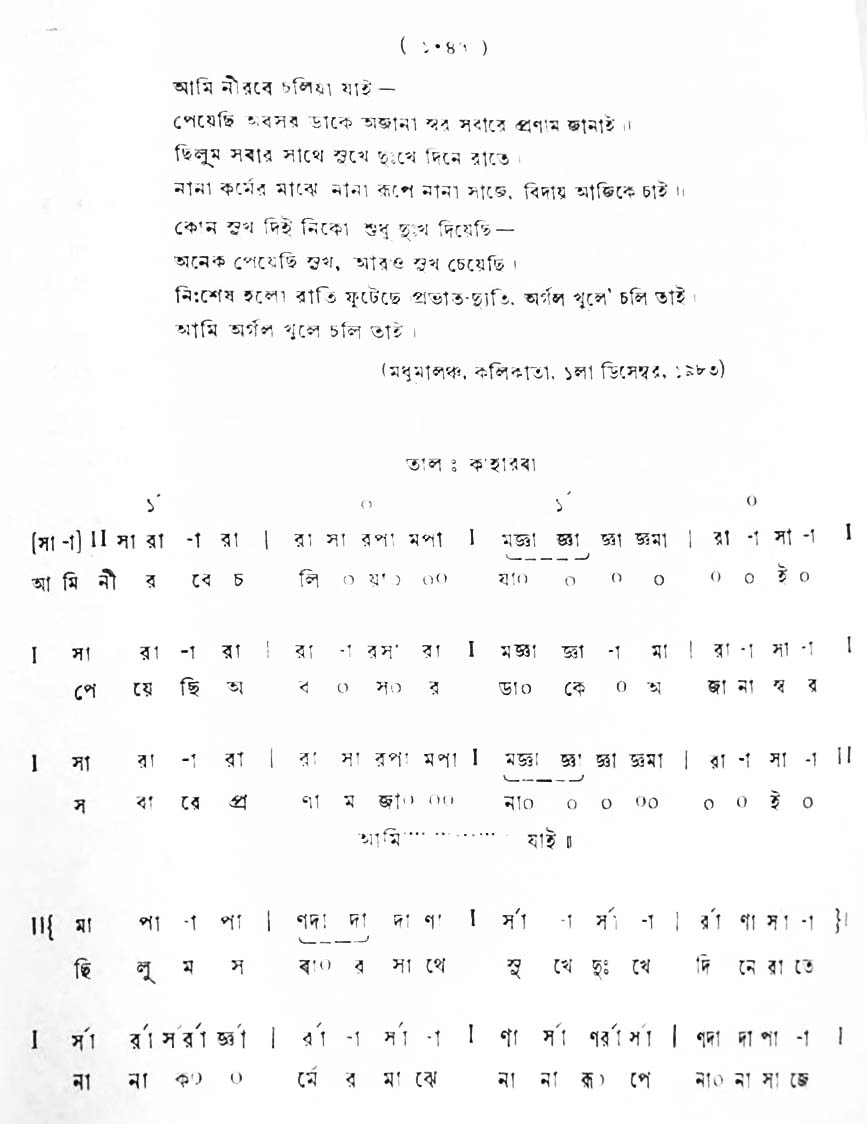 আমি নীরবে চলিয়া যাই —
পেয়েছি অবসর ডাকে অজানা স্বর সবারে প্রণাম জানাই ॥
ছিলুম সবার সাথে সুখে দুঃখে দিনে রাতে ।
নানা কর্মের মাঝে নানা রূপে নানা সাজে, বিদায় আজিকে চাই ॥
কোন সুখ দিই নিকো শুধু দুঃখ দিয়েছি —
অনেক পেয়েছি সুখ, আরও সুখ চেয়েছি ।
নিঃশেষ হলো রাতি ফুটেছে প্রভাত-দ্যুতি, অর্গল খুলে' চলি তাই ।
আমি অর্গল খুলে চলি তাই ।
(মধুমালঞ্চ, কলিকাতা, ১লা ডিসেম্বর, ১৯৮৩)
তাল : কাহারবা
১´ ০ ১´ ০
[সা -া] II সা রা -া রা | রা সা রপা মপা I মজ্ঞা জ্ঞা জ্ঞা জ্ঞমা | রা -া সা -া I
আ মি নী র বে চ লি ০ য়া০ ০০ যা০ ০ ০ ০ ০ ০ ই ০
I সা রা -া রা | রা -া রসা রা I মজ্ঞা জ্ঞা -া মা | রা -া সা -া I
পে য়ে ছি অ ব ০ স০ র ডা০ কে ০ অ জা না স্ব র
I সা রা -া রা | রা সা রপা মপা I মজ্ঞা জ্ঞা জ্ঞা জ্ঞমা | রা -া সা -া II
স বা রে প্র ণা ম জা০ ০০ না০ ০ ০ ০০ ০ ০ ই ০
আমি ............ যাই ॥
II{ মা পা -া পা | ণদা দা দা ণা I র্সা -া র্সা -া | র্রা ণা সা -া }I
ছি লু ম স বা০ র সা থে সু খে দুঃ খে দি নে রা তে
I র্সা র্রা র্সর্রা র্জ্ঞা | র্রা -া র্সা -া I ণা র্সা ণর্রা র্সা | ণদা দা পা -া I
না না ক০ ০ র্মে র মা ঝে না না রূ০ পে না০ না সা জে